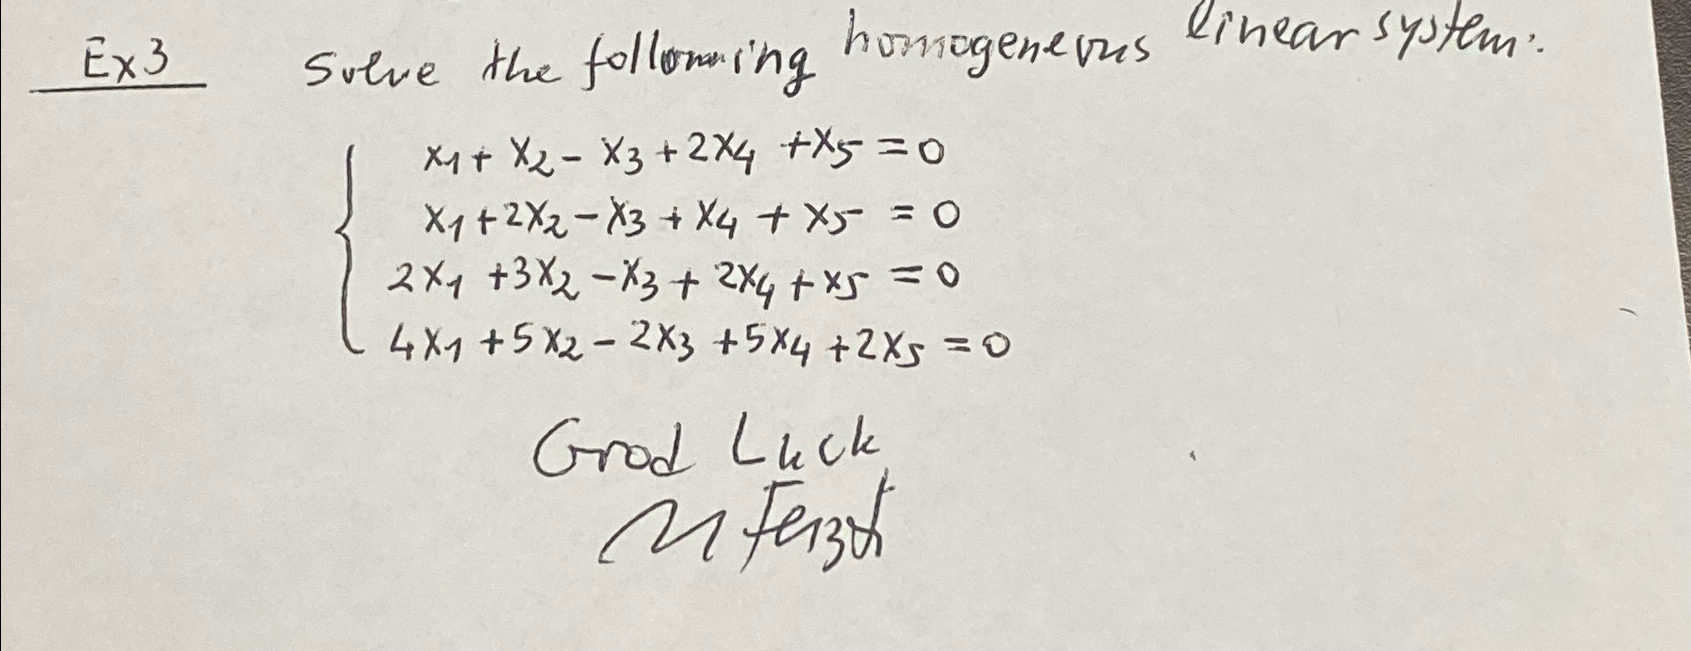 Ex3 Solve the following homogeneous linear system:
x1 + x2 - x3 + 2x4 + x5 = 0
x1 + 2x2 - x3 + x4 + x5 = 0
2x1 + 3x2 - x3 + 2x4 + x5 = 0
4x1 + 5x2 - 2x3 + 5x4 + 2x5 = 0
Good Luck
M